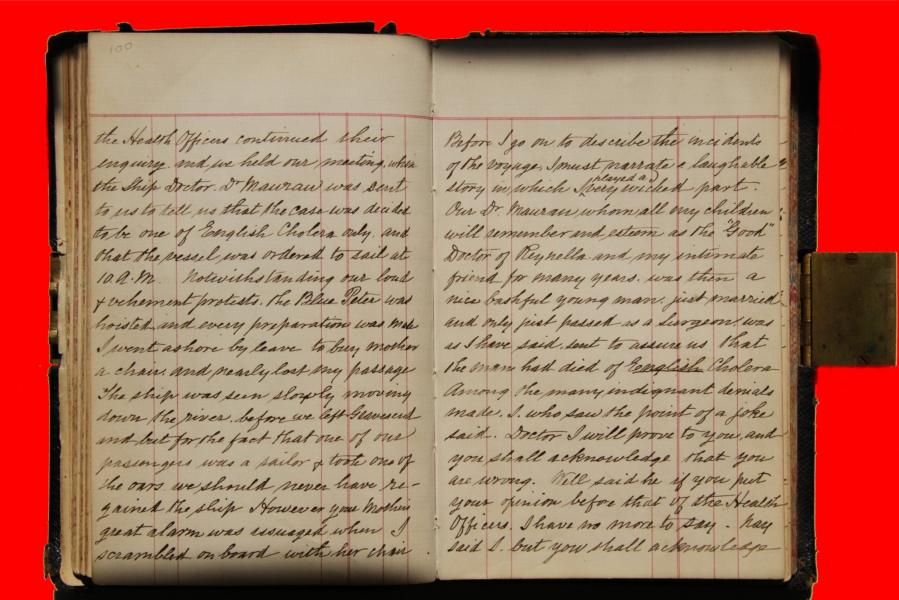 100
the Health Officers continued their
enquiry. and we held our meeting. when
the Ship Doctor. Dr Mauran was sent
to us to tell us that the case was decided
to be one of English Cholera only. and
that the vessel was ordered to sail at
10. A.M. Notwithstanding our loud
& vehement protests. the Blue Peter was
hoisted and every preparation was made
I went ashore by leave to buy mother
a chair. and nearly lost my passage
The ship was seen slowly moving
down the river. before we left Gravesend
and but for the fact that one of our
passengers was a sailor & took one of
the oars. we should never have re-
gained the ship However your Mothers
great alarm was assuaged when I
scrambled on board with her chair
Before I go on to describe the incidents
of the voyage. I must narrate a laughable
story in which I played a very wicked part.
Our Dr. Mauran whom all my children
will remember and esteem as the "Good"
Doctor of Reynella and my intimate
friend for many years. was then a
nice bashful young man. just married
and only just passed as a Surgeon. was
as I have said. sent to assure us that
the man had died of English Cholera
Among the many indignant denials
made. I. who saw the point of a joke
said. Doctor I will prove to you, and
you shall acknowledge that you
are wrong. Well said he if you put
your opinion before that of the Health
Officers. I have no more to say. Nay
said I. but you shall acknowledge